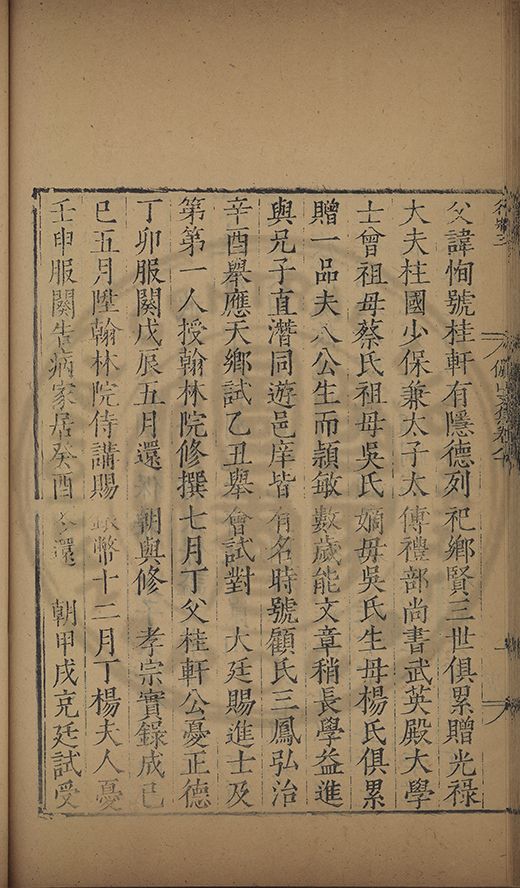 父諱恂號桂軒有隱德列祀鄉賢三世俱累贈光祿
大夫柱國少保兼太子太傅禮部尚書武英殿大學
士曾祖母蔡氏祖母吳氏嫡母吳氏生母楊氏俱累
贈一品夫人公生而穎敏數歲能文章稍長學益進
與兄子直潛同遊邑庠皆有名時號顧氏三鳳弘治
辛酉舉應天鄉試乙丑舉會試對 大廷賜進士及
第第一人授翰林院修撰七月丁父桂軒公憂正德
丁卯服闋戊辰五月還 朝與修 孝宗實錄成己
巳五月陞翰林院侍講賜銀幣十二月丁楊夫人憂
壬申服闋告病家居癸酉 還 朝甲戌充廷試受